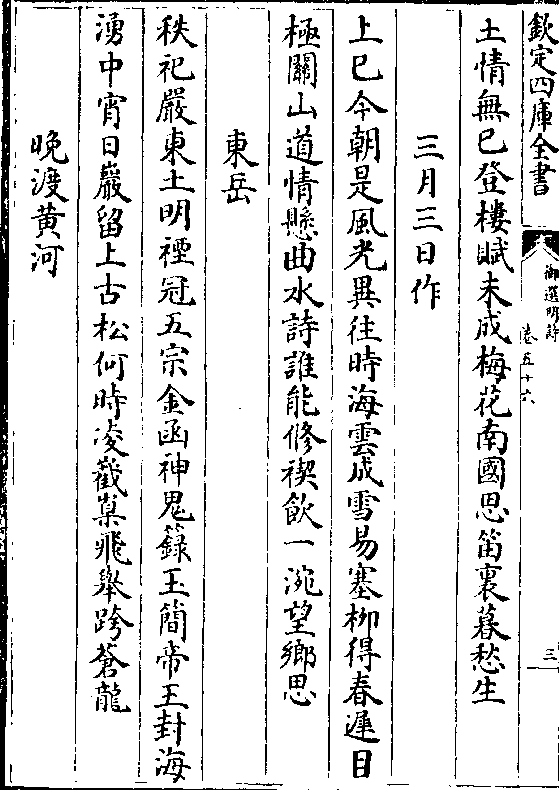 欽定四庫全書
御選明詩
卷五十六
三
土情無已登樓賦未成梅花南國思笛裏暮愁生
三月三日作
上巳今朝是風光異往時海雲成雪易塞柳得春遲目
極關山道情懸曲水詩誰能修禊飲一洗望鄉思
東岳
秩祀嚴東土明禋冠五宗金函神鬼籙玉簡帝王封海
湧中宵日巖留上古松何時凌巀嶪飛舉跨蒼龍
晚渡黄河